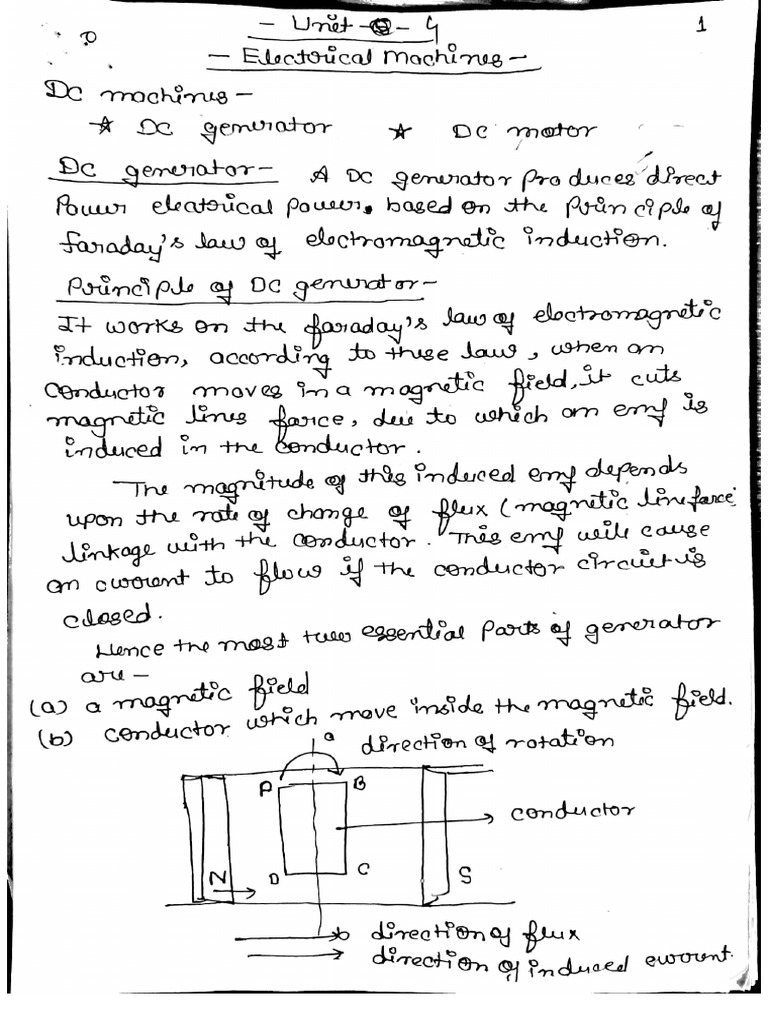 - Unit - 4
1
- Electrical Machines -
DC machines -
☆ DC generator ☆ DC motor
DC generator - A DC generator produces direct
Power electrical power, based on the principle of
faraday's law of electromagnetic induction.
Principle of DC generator -
It works on the faraday's law of electromagnetic
induction, according to these law, when an
conductor moves in a magnetic field, it cuts
magnetic lines farce, due to which an emf is
induced in the conductor.
The magnitude of this induced emf depends
upon the rate of change of flux (magnetic line farce)
linkage with the conductor. This emf will cause
an current to flow if the conductor circuit is
closed.
Hence the most two essential parts of generator
are -
(a) a magnetic field
(b) conductor which move inside the magnetic field.
a
direction of rotation
A B
conductor
N D C S
direction of flux
direction of induced current.